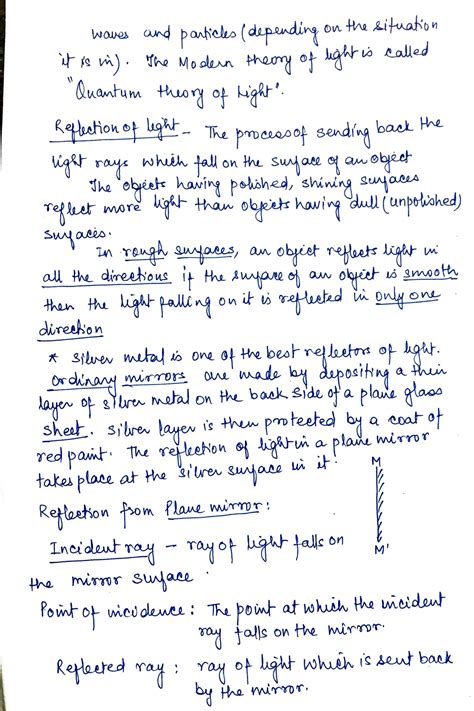 waves and particles (depending on the situation
it is in). The Modern theory of light is called
"Quantum theory of Light".
Reflection of light - The process of sending back the
light rays which fall on the surface of an object
The objects having polished, shining surfaces
reflect more light than objects having dull (unpolished)
surfaces.
In rough surfaces, an object reflects light in
all the directions if the surface of an object is smooth
then the light falling on it is reflected in only one
direction
* Silver metal is one of the best reflectors of light.
Ordinary mirrors are made by depositing a thin
layer of silver metal on the back side of a plane glass
sheet. Silver layer is then protected by a coat of
red paint. The reflection of light in a plane mirror
takes place at the silver surface in it.
M
Reflection from Plane mirror:
Incident ray - ray of light falls on
M'
the mirror surface.
Point of incidence: The point at which the incident
ray falls on the mirror.
Reflected ray: ray of light which is sent back
by the mirror.